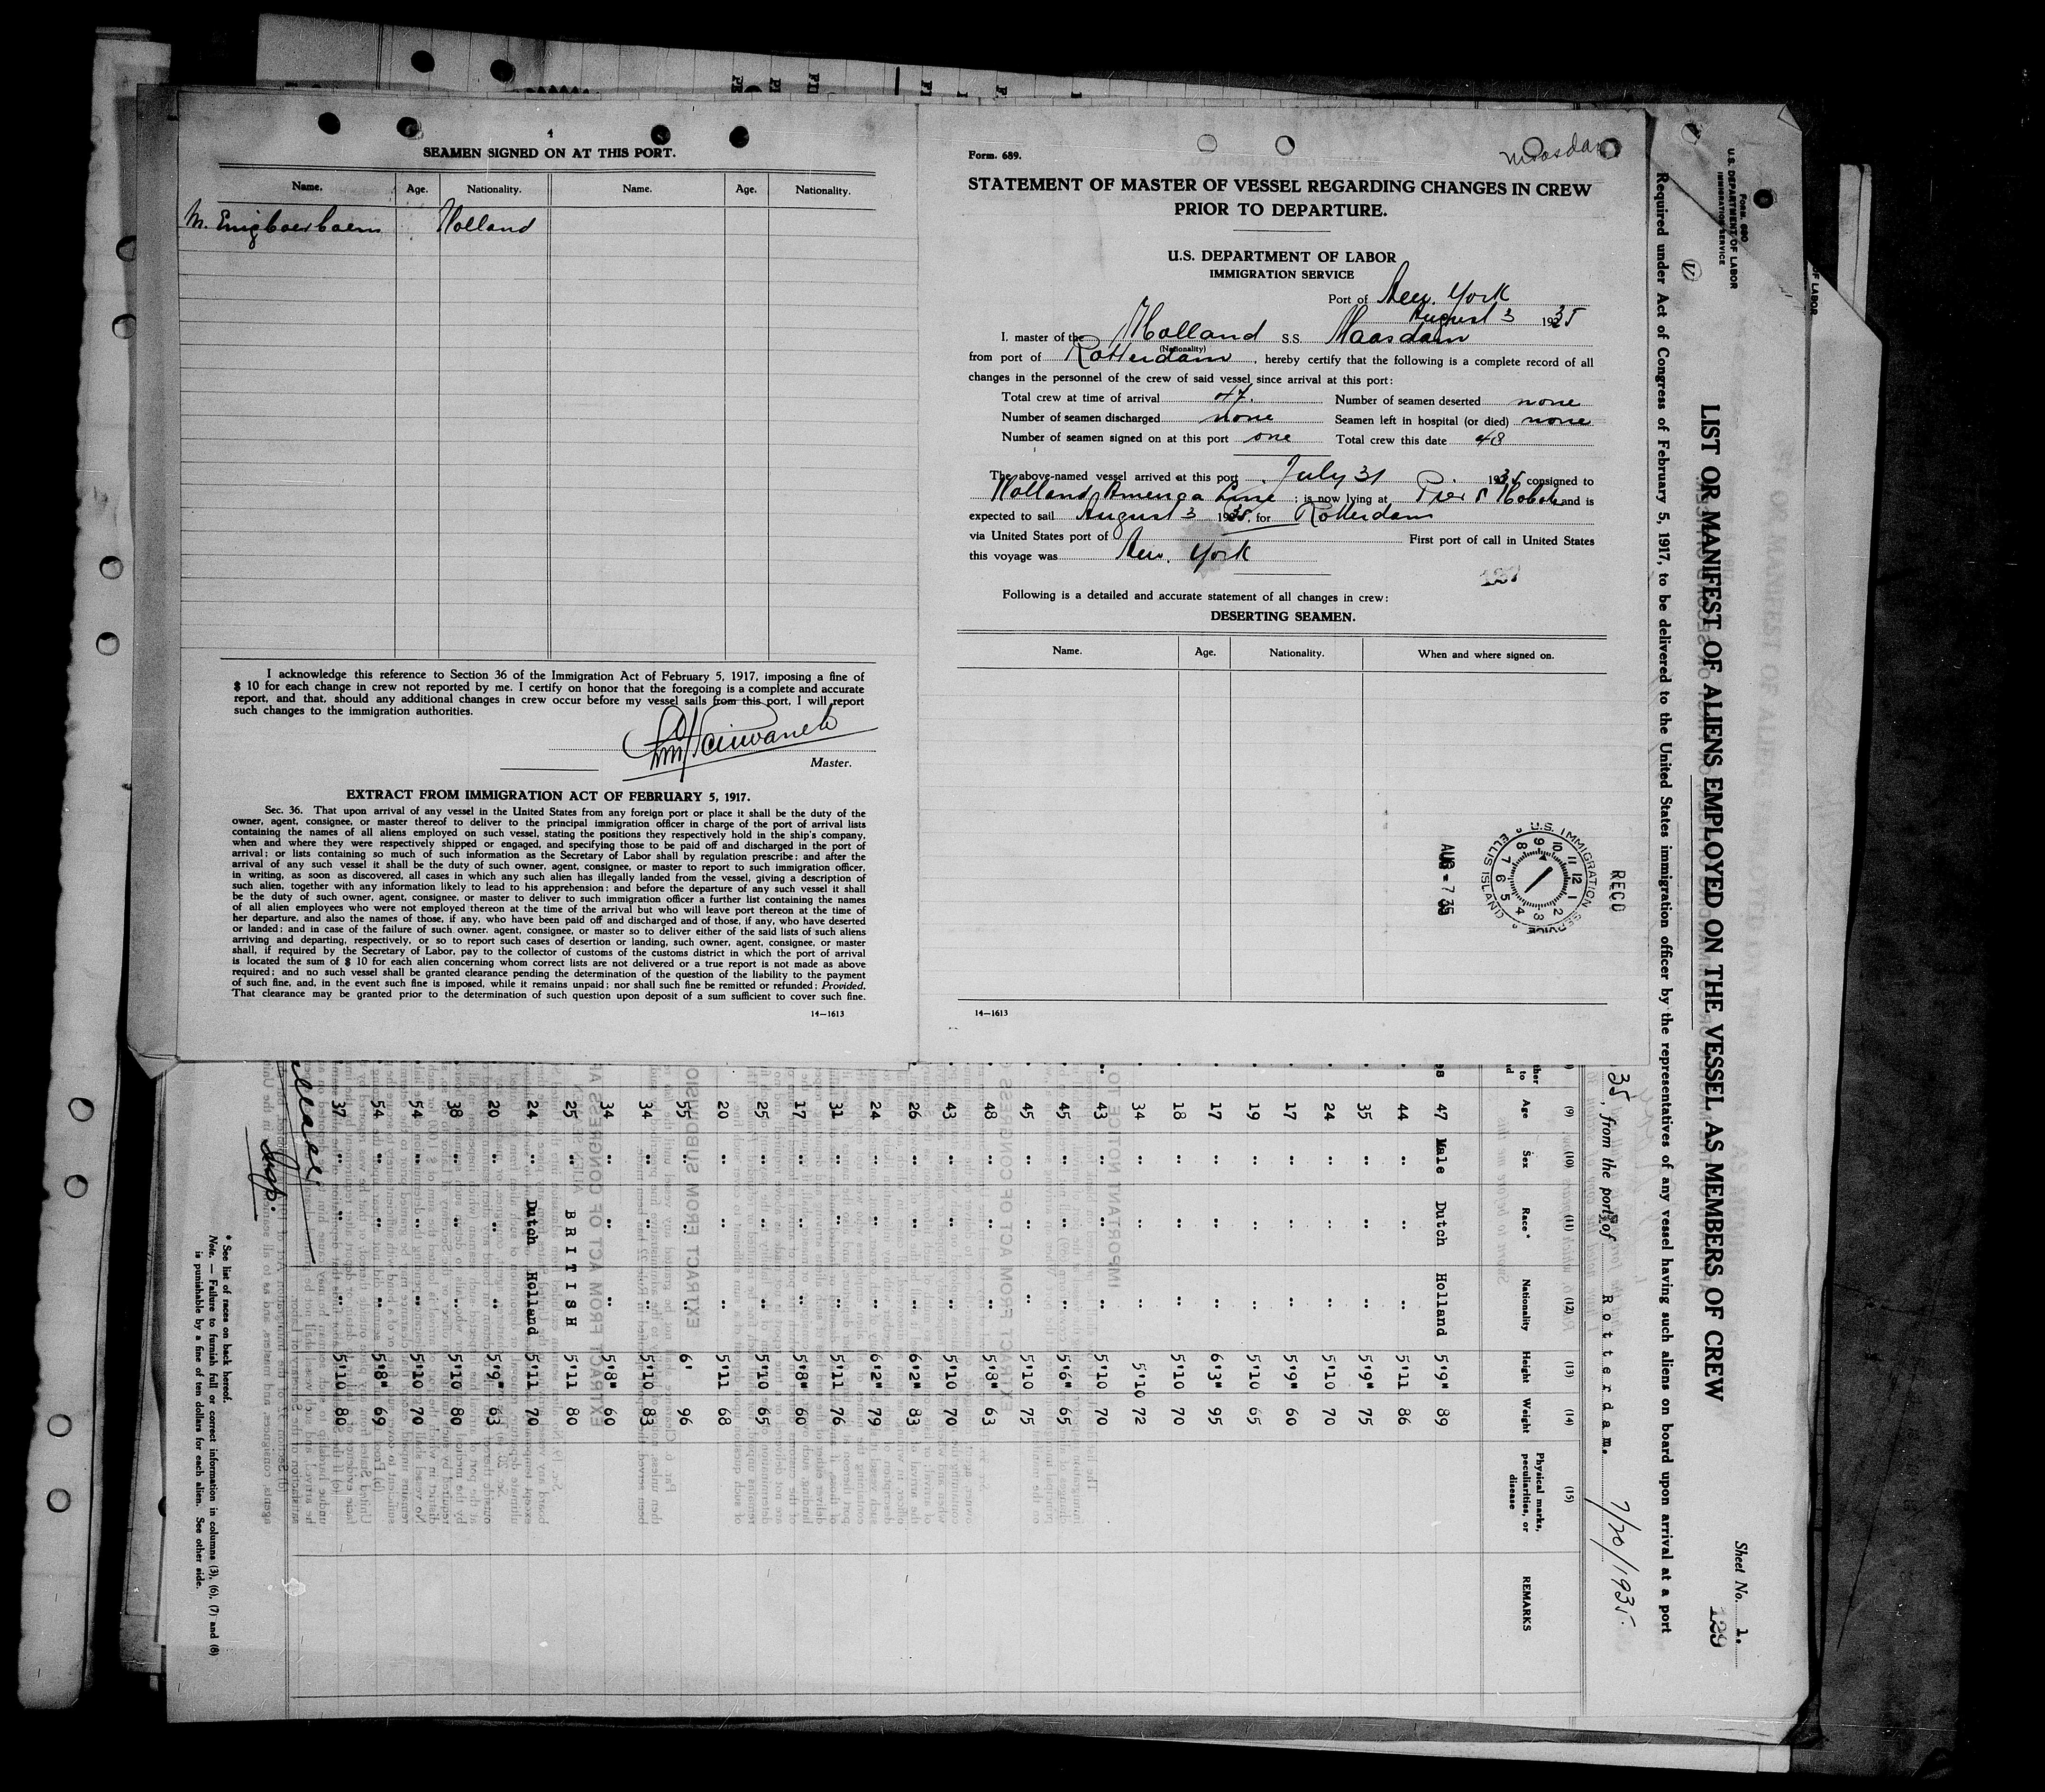 4
SEAMEN SIGNED ON AT THIS PORT.
Name. Age. Nationality. Name. Age. Nationality.
M. Holland
I acknowledge this reference to Section 36 of the Immigration Act of February 5, 1917, imposing a fine of
$ 10 for each change in crew not reported by me. I certify on honor that the foregoing is a complete and accurate
report, and that, should any additional changes in crew occur before my vessel sails from this port, I will report
such changes to the immigration authorities.
Master.
EXTRACT FROM IMMIGRATION ACT OF FEBRUARY 5, 1917.
Sec. 36. That upon arrival of any vessel in the United States from any foreign port or place it shall be the duty of the
owner, agent, consignee, or master thereof to deliver to the principal immigration officer in charge of the port of arrival lists
containing the names of all aliens employed on such vessel, stating the positions they respectively hold in the ship's company,
when and where they were respectively shipped or engaged, and specifying those to be paid off and discharged in the port of
arrival; or lists containing so much of such information as the Secretary of Labor shall by regulation prescribe; and after the
arrival of any such vessel it shall be the duty of such owner, agent, consignee, or master to report to such immigration officer,
in writing, as soon as discovered, all cases in which any such alien has illegally landed from the vessel, giving a description of
such alien, together with any information likely to lead to his apprehension; and before the departure of any such vessel it shall
be the duty of such owner, agent, consignee, or master to deliver to such immigration officer a further list containing the names
of all alien employees who were not employed thereon at the time of the arrival but who will leave port thereon at the time of
her departure, and also the names of those, if any, who have been paid off and discharged and of those, if any, who have deserted
or landed; and in case of the failure of such owner. agent, consignee, or master so to deliver either of the said lists of such aliens
arriving and departing, respectively, or so to report such cases of desertion or landing, such owner, agent, consignee, or master
shall, if required by the Secretary of Labor, pay to the collector of customs of the customs district in which the port of arrival
is located the sum of $ 10 for each alien concerning whom correct lists are not delivered or a true report is not made as above
required; and no such vessel shall be granted clearance pending the determination of the question of the liability to the payment
of such fine, and, in the event such fine is imposed, while it remains unpaid; nor shall such fine be remitted or refunded; Provided,
That clearance may be granted prior to the determination of such question upon deposit of a sum sufficient to cover such fine.
14—1613
Form. 689.
Maasdam
STATEMENT OF MASTER OF VESSEL REGARDING CHANGES IN CREW
PRIOR TO DEPARTURE.
U.S. DEPARTMENT OF LABOR
IMMIGRATION SERVICE
Port of New York
August 3 1935
I. master of the Holland S.S. Maasdam
(Nationality)
from port of Rotterdam, hereby certify that the following is a complete record of all
changes in the personnel of the crew of said vessel since arrival at this port:
Total crew at time of arrival 47. Number of seamen deserted none
Number of seamen discharged none Seamen left in hospital (or died) none
Number of seamen signed on at this port one Total crew this date 48
The above-named vessel arrived at this port July 31 1935 consigned to
Holland America Line; is now lying at Pier 5 Hoboken and is
expected to sail August 3 1935, for Rotterdam
via United States port of First port of call in United States
this voyage was New York
137
Following is a detailed and accurate statement of all changes in crew:
DESERTING SEAMEN.
Name. Age. Nationality. When and where signed on.
RECD
U.S. IMMIGRATION SERVICE
ELLIS ISLAND
12 1 2 3 4 5 6 7 8 9 10 11
AUG - 7 35
14—1613
Form 680
U.S. DEPARTMENT OF LABOR
IMMIGRATION SERVICE
Sheet No. 1.
129
LIST OR MANIFEST OF ALIENS EMPLOYED ON THE VESSEL AS MEMBERS OF CREW
Required under Act of Congress of February 5, 1917, to be delivered to the United States immigration officer by the representatives of any vessel having such aliens on board upon arrival at a port
35, from the port of Rotterdam. 7/20/1935
(9) (10) (11) (12) (13) (14) (15)
Age Sex Race* Nationality Height Weight Physical marks, peculiarities, or disease REMARKS
47 Male Dutch Holland 5'9" 89
44 " " " 5'11 86
35 " " " 5'9" 75
24 " " " 5'10 70
17 " " " 5'9" 60
19 " " " 5'10 65
17 " " " 6'3" 95
18 " " " 5'10 70
34 " " " 5'10 72
43 " " " 5'10 70
45 " " " 5'6" 65
45 " " " 5'10 75
48 " " " 5'8" 63
43 " " " 5'10 70
26 " " " 6'2" 83
24 " " " 6'2" 79
31 " " " 5'11 76
17 " " " 5'8" 60
25 " " " 5'10 65
20 " " " 5'11 68
55 " " " 6' 96
34 " " " 5'10 83
34 " " " 5'8" 60
25 " BRITISH 5'11 80
24 " Dutch Holland 5'11 70
20 " " " 5'9" 63
38 " " " 5'10 80
54 " " " 5'10 70
54 " " " 5'8" 69
37 " " " 5'10 80
* See list of races on back hereof.
Note. — Failure to furnish full or correct information in columns (3), (6), (7) and (8)
is punishable by a fine of ten dollars for each alien. See other side.